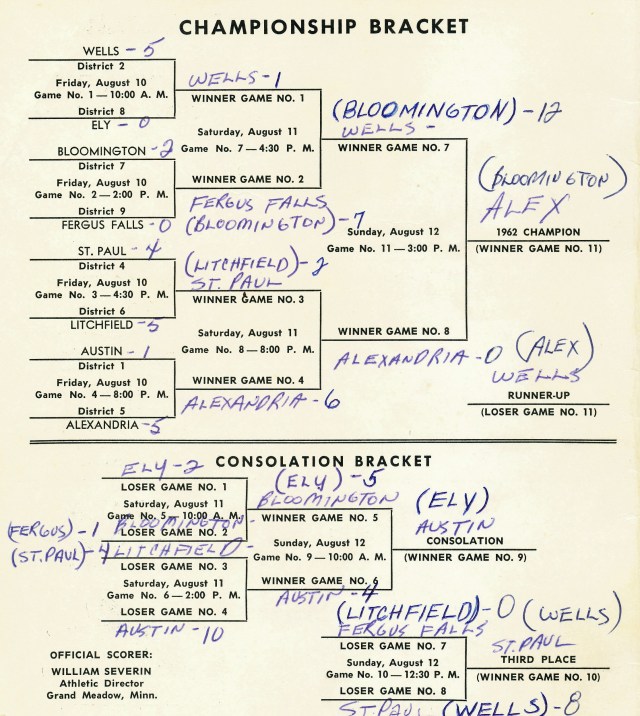 CHAMPIONSHIP BRACKET
WELLS - 5
District 2
Friday, August 10
Game No. 1 — 10:00 A. M.
District 8
ELY - 0
WELLS - 1
WINNER GAME NO. 1
BLOOMINGTON - 2
District 7
Friday, August 10
Game No. 2 — 2:00 P. M.
District 9
FERGUS FALLS - 0
Saturday, August 11
Game No. 7 — 4:30 P. M.
WINNER GAME NO. 2
FERGUS FALLS
(BLOOMINGTON) - 7
(BLOOMINGTON) - 12
WELLS -
WINNER GAME NO. 7
ST. PAUL - 4
District 4
Friday, August 10
Game No. 3 — 4:30 P. M.
District 6
LITCHFIELD - 5
(LITCHFIELD) - 2
ST. PAUL
WINNER GAME NO. 3
AUSTIN - 1
District 1
Friday, August 10
Game No. 4 — 8:00 P. M.
District 5
ALEXANDRIA - 5
Saturday, August 11
Game No. 8 — 8:00 P. M.
WINNER GAME NO. 4
ALEXANDRIA - 6
Sunday, August 12
Game No. 11 — 3:00 P. M.
WINNER GAME NO. 8
ALEXANDRIA - 0
(BLOOMINGTON)
ALEX
1962 CHAMPION
(WINNER GAME NO. 11)
(ALEX)
WELLS
RUNNER-UP
(LOSER GAME NO. 11)
CONSOLATION BRACKET
ELY - 2
LOSER GAME NO. 1
Saturday, August 11
Game No. 5 — 10:00 A. M.
(FERGUS) - 1 BLOOMINGTON -
LOSER GAME NO. 2
(ST. PAUL) - 4 LITCHFIELD -
LOSER GAME NO. 3
Saturday, August 11
Game No. 6 — 2:00 P. M.
LOSER GAME NO. 4
AUSTIN - 10
(ELY) - 5
BLOOMINGTON
WINNER GAME NO. 5
Sunday, August 12
Game No. 9 — 10:00 A. M.
WINNER GAME NO. 6
AUSTIN - 4
(ELY)
AUSTIN
CONSOLATION
(WINNER GAME NO. 9)
(LITCHFIELD) - 0
FERGUS FALLS
LOSER GAME NO. 7
Sunday, August 12
Game No. 10 — 12:30 P. M.
LOSER GAME NO. 8
ST. PAUL (WELLS) - 8
(WELLS)
ST. PAUL
THIRD PLACE
(WINNER GAME NO. 10)
OFFICIAL SCORER:
WILLIAM SEVERIN
Athletic Director
Grand Meadow, Minn.